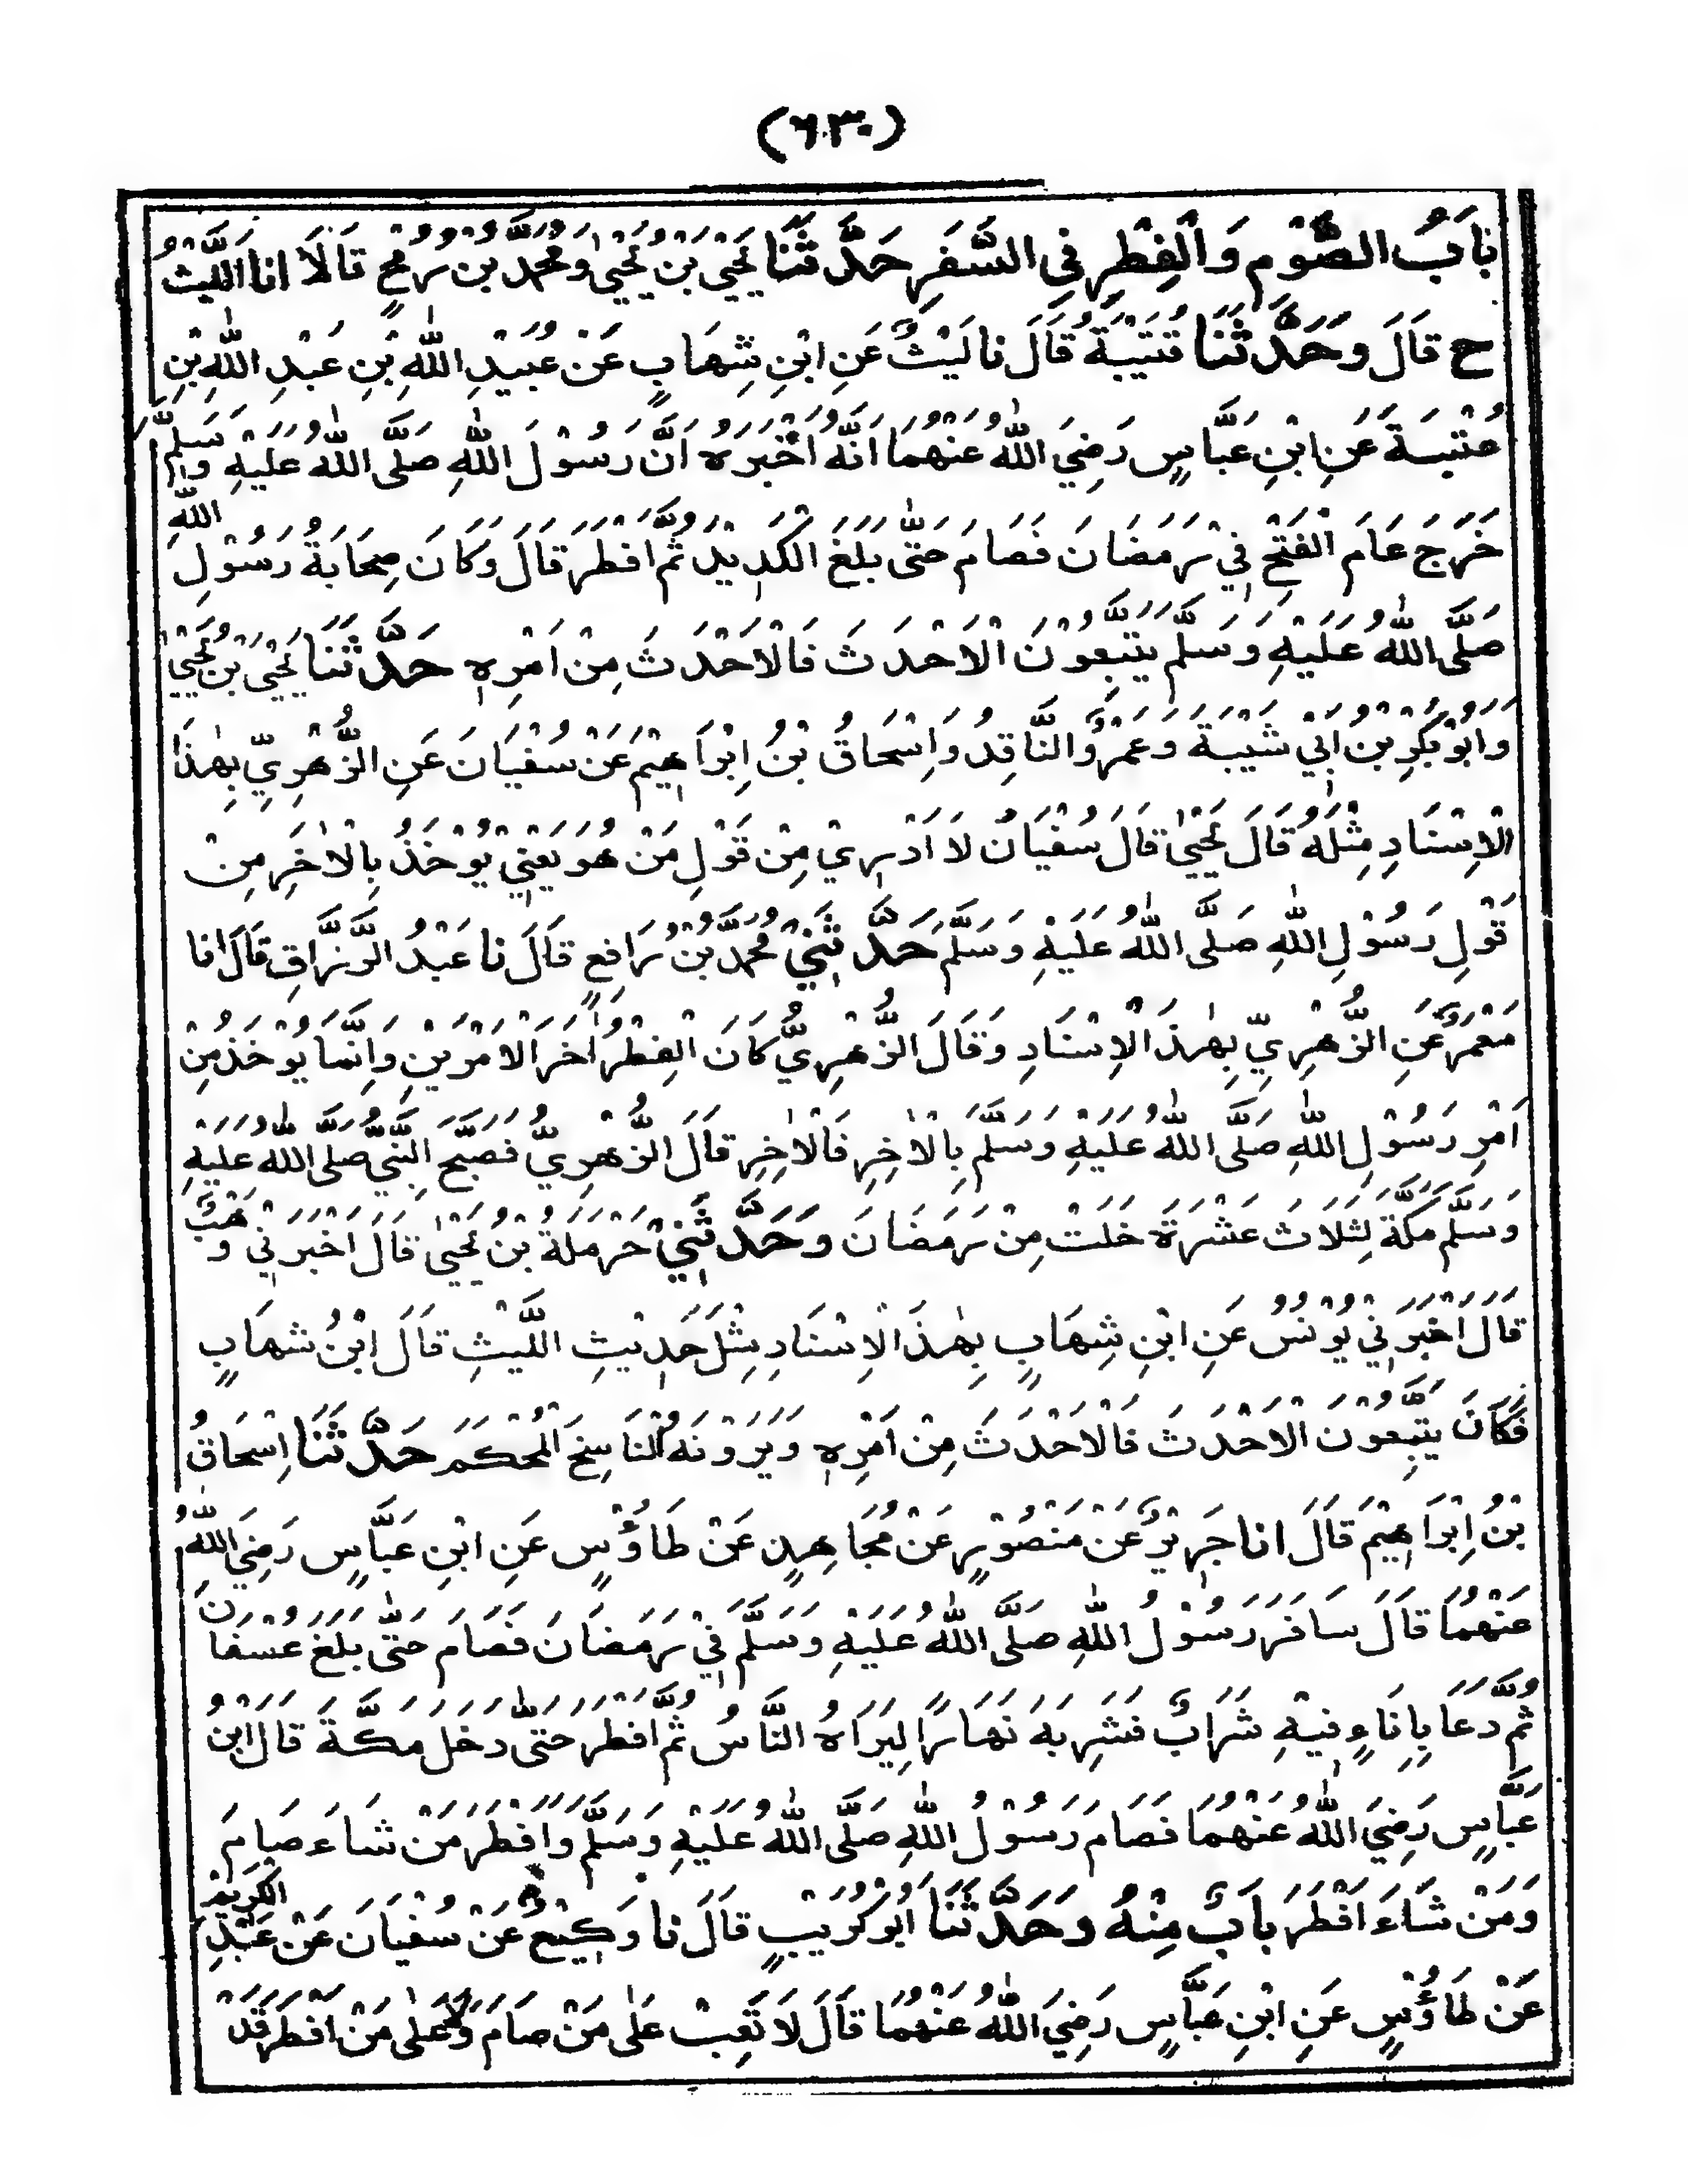 (٦٣٠)
بَابُ الصَّوْمِ وَالْفِطْرِ فِي السَّفَرِ حَدَّثَنَا يَحْيَى بْنُ يَحْيٰى وَمُحَمَّدُ بْنُ رُمْحٍ قَالَا انا اللَّيْثُ
ح قَالَ وَحَدَّثَنَا قُتَيْبَةُ قَالَ نا لَيْثٌ عَنِ ابْنِ شِهَابٍ عَنْ عُبَيْدِ اللّٰهِ بْنِ عَبْدِ اللّٰهِ بْنِ
عُتْبَةَ عَنِ ابْنِ عَبَّاسٍ رَضِيَ اللّٰهُ عَنْهُمَا اَنَّهُ اَخْبَرَهُ اَنَّ رَسُوْلَ اللّٰهِ صَلَّى اللّٰهُ عَلَيْهِ وَسَلَّمَ
خَرَجَ عَامَ الْفَتْحِ فِيْ رَمَضَانَ فَصَامَ حَتّٰى بَلَغَ الْكَدِيْدَ ثُمَّ اَفْطَرَ قَالَ وَكَانَ صِحَابَةُ رَسُوْلِ اللّٰهِ
صَلَّى اللّٰهُ عَلَيْهِ وَسَلَّمَ يَتَّبِعُوْنَ الْاَحْدَثَ فَالْاَحْدَثَ مِنْ اَمْرِهٖ حَدَّثَنَا يَحْيَى بْنُ يَحْيٰى
وَاَبُوْ بَكْرِ بْنُ اَبِيْ شَيْبَةَ وَعَمْرٌو النَّاقِدُ وَاِسْحَاقُ بْنُ اِبْرَاهِيْمَ عَنْ سُفْيَانَ عَنِ الزُّهْرِيِّ بِهٰذَا
الْاِسْنَادِ مِثْلَهُ قَالَ يَحْيٰى قَالَ سُفْيَانُ لَا اَدْرِيْ مِنْ قَوْلِ مَنْ هُوَ يَعْنِيْ يُوْخَذُ بِالْاٰخِرِ مِنْ
قَوْلِ رَسُوْلِ اللّٰهِ صَلَّى اللّٰهُ عَلَيْهِ وَسَلَّمَ حَدَّثَنِيْ مُحَمَّدُ بْنُ رَافِعٍ قَالَ نا عَبْدُ الرَّزَّاقِ قَالَ انا
مَعْمَرٌ عَنِ الزُّهْرِيِّ بِهٰذَا الْاِسْنَادِ وَقَالَ الزُّهْرِيُّ كَانَ الْفِطْرُ اٰخِرَ الْاَمْرَيْنِ وَاِنَّمَا يُوْخَذُ مِنْ
اَمْرِ رَسُوْلِ اللّٰهِ صَلَّى اللّٰهُ عَلَيْهِ وَسَلَّمَ بِالْاٰخِرِ فَالْاٰخِرِ قَالَ الزُّهْرِيُّ فَصَبَّحَ النَّبِيُّ صَلَّى اللّٰهُ عَلَيْهِ
وَسَلَّمَ مَكَّةَ لِثَلَاثَ عَشْرَةَ خَلَتْ مِنْ رَمَضَانَ وَحَدَّثَنِيْ حَرْمَلَةُ بْنُ يَحْيٰى قَالَ اَخْبَرَنِيْ وَهْبٌ
قَالَ اَخْبَرَنِيْ يُوْنُسُ عَنِ ابْنِ شِهَابٍ بِهٰذَا الْاِسْنَادِ مِثْلَ حَدِيْثِ اللَّيْثِ قَالَ ابْنُ شِهَابٍ
فَكَانَ يَتَّبِعُوْنَ الْاَحْدَثَ فَالْاَحْدَثَ مِنْ اَمْرِهٖ وَيَرَوْنَهُ النَّاسِخَ الْمُحْكَمَ حَدَّثَنَا اِسْحَاقُ
بْنُ اِبْرَاهِيْمَ قَالَ انا جَرِيْرٌ عَنْ مَنْصُوْرٍ عَنْ مُجَاهِدٍ عَنْ طَاوُسٍ عَنِ ابْنِ عَبَّاسٍ رَضِيَ اللّٰهُ
عَنْهُمَا قَالَ سَافَرَ رَسُوْلُ اللّٰهِ صَلَّى اللّٰهُ عَلَيْهِ وَسَلَّمَ فِيْ رَمَضَانَ فَصَامَ حَتّٰى بَلَغَ عُسْفَانَ
ثُمَّ دَعَا بِاِنَاءٍ فِيْهِ شَرَابٌ فَشَرِبَهَ نَهَارًا لِيَرَاهُ النَّاسُ ثُمَّ اَفْطَرَ حَتّٰى دَخَلَ مَكَّةَ قَالَ ابْنُ
عَبَّاسٍ رَضِيَ اللّٰهُ عَنْهُمَا فَصَامَ رَسُوْلُ اللّٰهِ صَلَّى اللّٰهُ عَلَيْهِ وَسَلَّمَ وَاَفْطَرَ مَنْ شَاءَ صَامَ
وَمَنْ شَاءَ اَفْطَرَ بَابٌ مِنْهُ وَحَدَّثَنَا اَبُوْ كُرَيْبٍ قَالَ نا وَكِيْعٌ عَنْ سُفْيَانَ عَنْ عَبْدِ الْكَرِيْمِ
عَنْ طَاوُسٍ عَنِ ابْنِ عَبَّاسٍ رَضِيَ اللّٰهُ عَنْهُمَا قَالَ لَا تَعِبْ عَلٰى مَنْ صَامَ وَلَا عَلٰى مَنْ اَفْطَرَ قَدْ